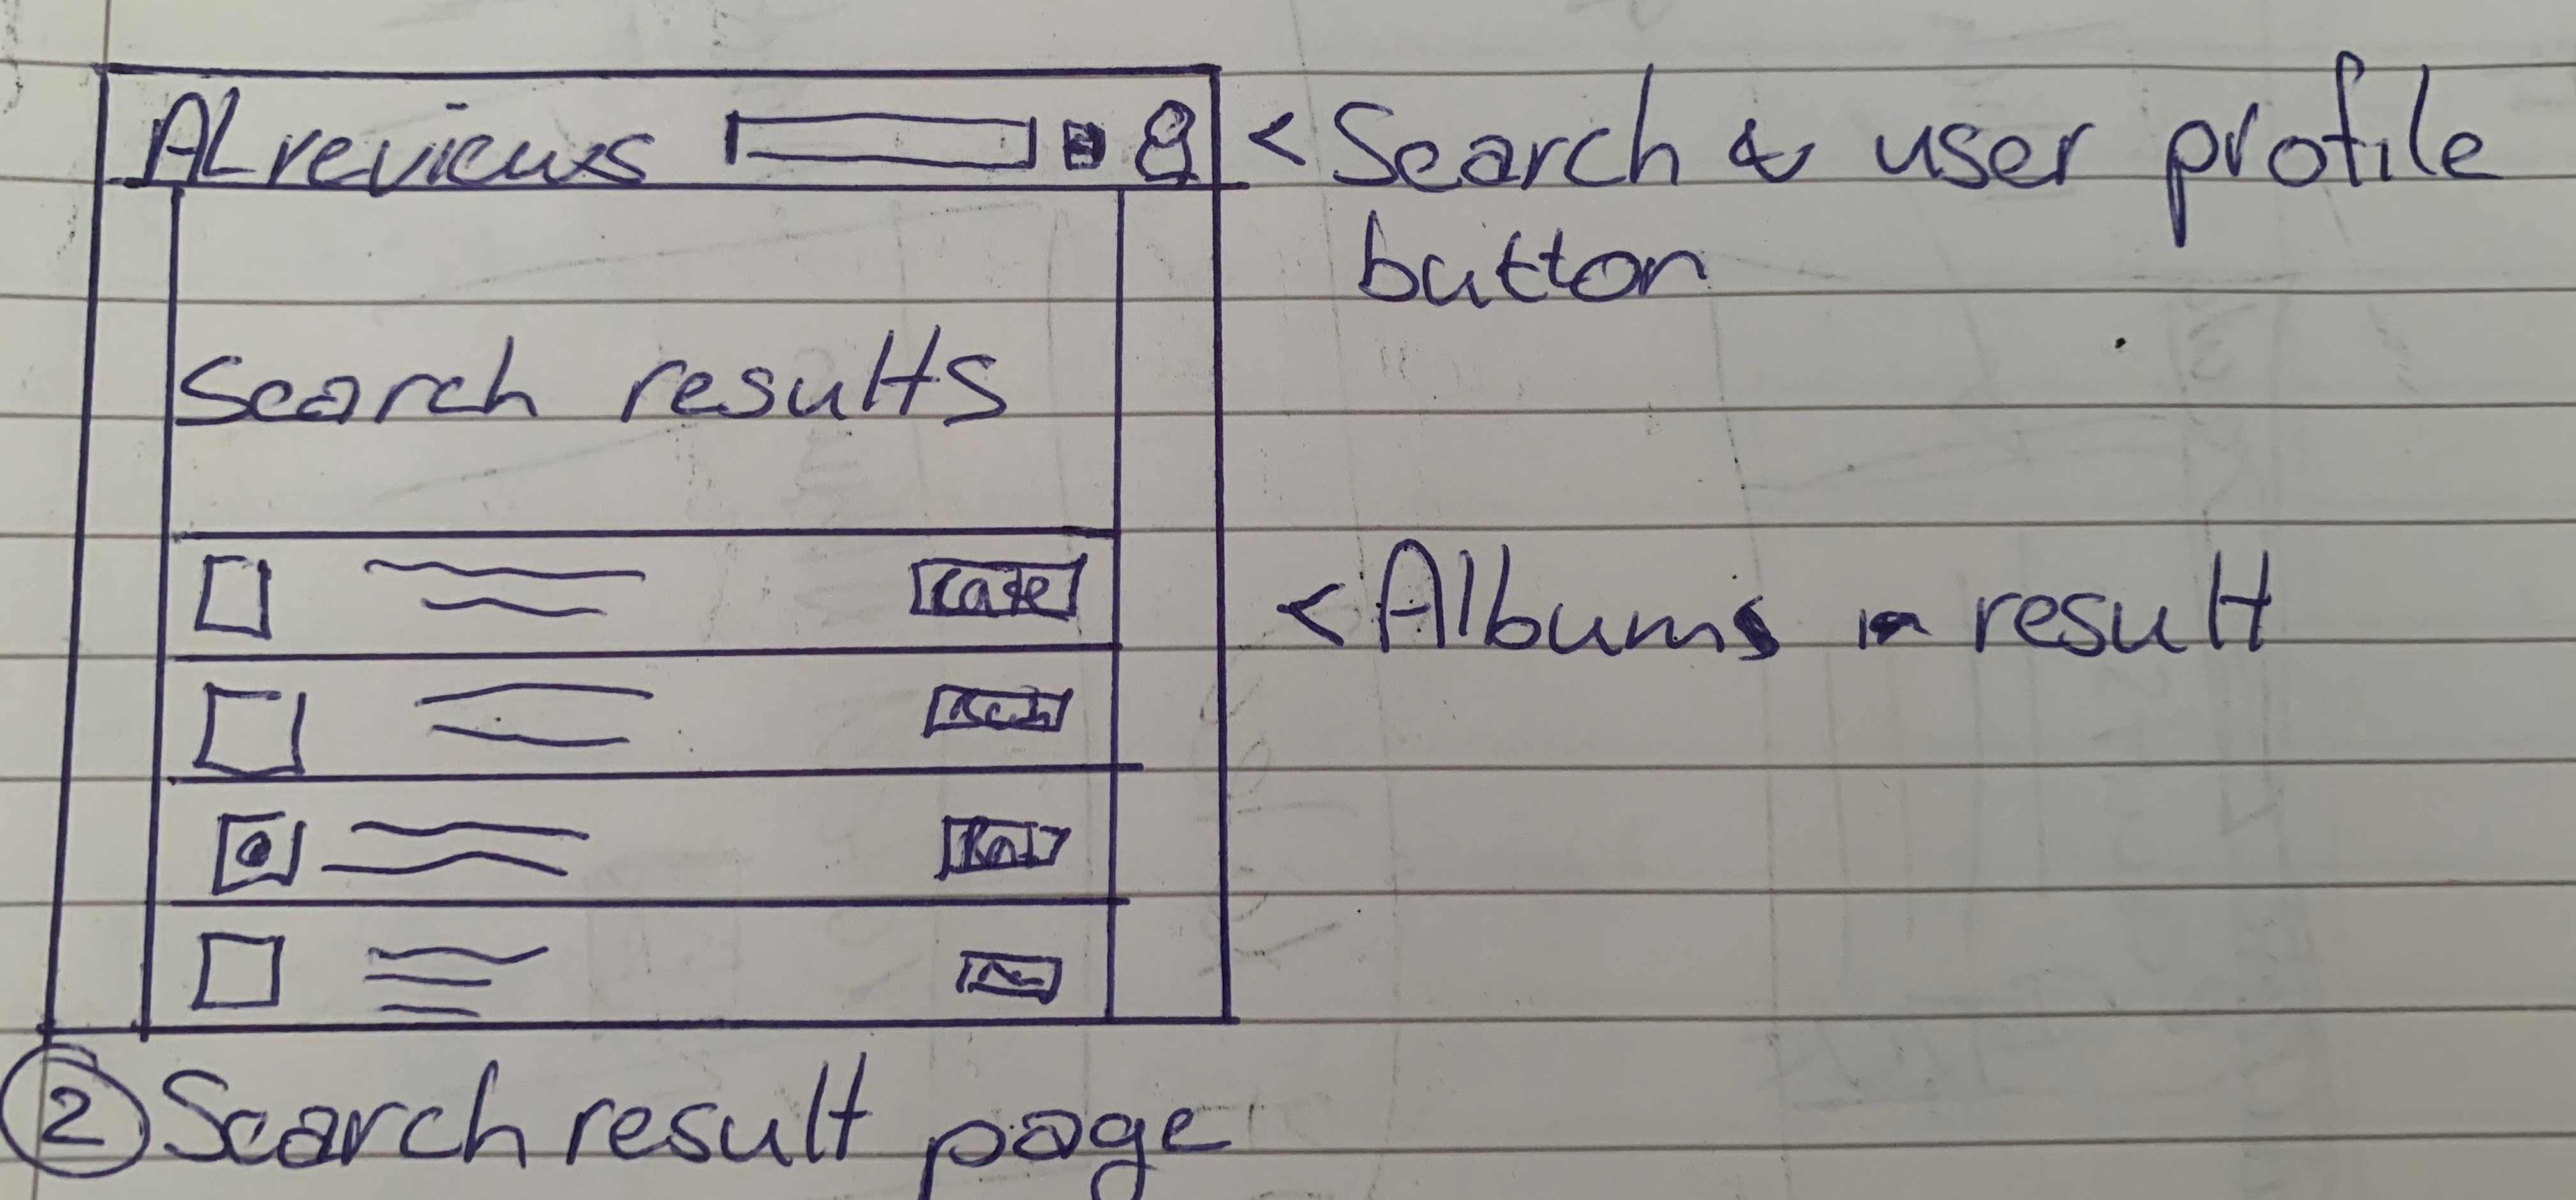 ALreviews
< Search & user profile
button
Search results
rate
< Albums in result
Rat
2 Search result page